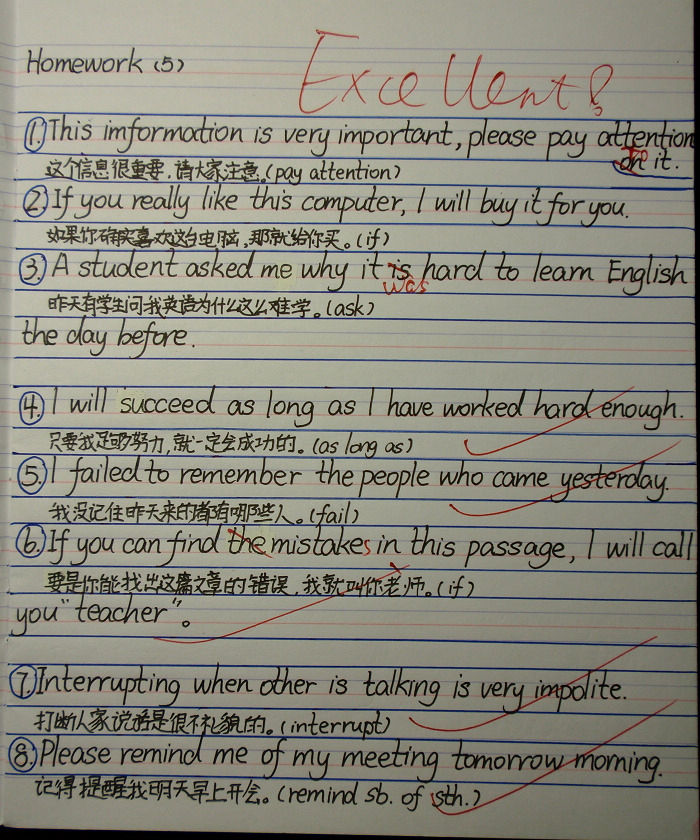 Homework (5)
Excellent!
①This imformation is very important, please pay attention
on it.
to
这个信息很重要,请大家注意.(pay attention)
②If you really like this computer, I will buy it for you.
如果你确实喜欢这台电脑,那就给你买。(if)
③A student asked me why it is hard to learn English
was
昨天有学生问我英语为什么这么难学。(ask)
the day before.
④I will succeed as long as I have worked hard enough.
只要我足够努力,就一定会成功的。(as long as)
⑤I failed to remember the people who came yesterday.
我没记住昨天来的都有哪些人。(fail)
⑥If you can find the mistakes in this passage, I will call
要是你能找出这篇文章的错误,我就叫你老师。(if)
you "teacher"。
⑦Interrupting when other is talking is very impolite.
打断人家说话是很不礼貌的。(interrupt)
⑧Please remind me of my meeting tomorrow morning.
记得提醒我明天早上开会。(remind sb. of sth.)